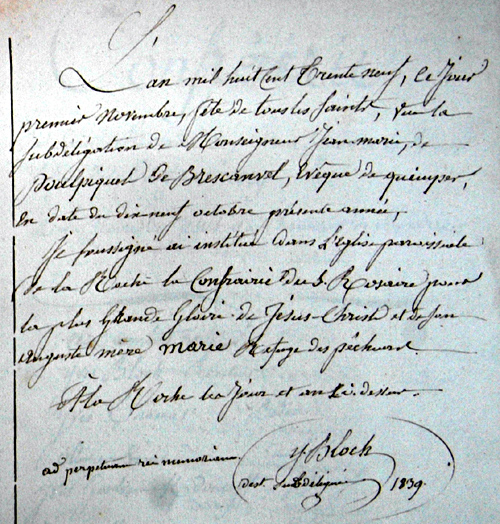 L'an mil huit Cent Trente neuf, Ce Jour
premier Novembre, fête de tous les Saints, vue la
subdélégation de Monseigneur Jean marie, de
Poulpiquet de Brescanvel, Evêque de quimper,
En date du dix-neuf octobre présente année,
Je soussigné ai institué dans L'église paroissiale
de la Roche la Confrairie du S. Rosaire pour
la plus Grande Gloire de Jésus-Christ et de Son
Auguste mère marie Refuge des pécheurs.
A la Roche les Jour et an Ci-dessus.
ad perpetuam rei memoriam
Y Bloch
dest Subdélégué 1839.